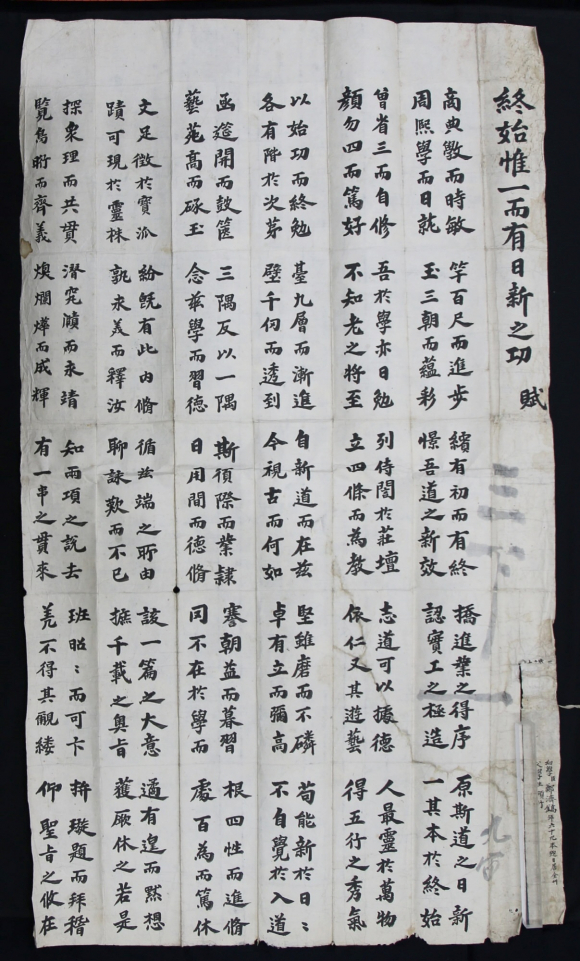 終始惟一而有日新之功 賦
商典斅而時敏 竿百尺而進步 繽有初而有終 進業之得序 原斯道之日新
周熙學而日就 玉三朝而蘊彩 憬吾道之新效 認實工之極造 一其本於終始
曾省三而自修 吾於學亦日勉 列侍誾於莊壇 志道可以據德 人最靈於萬物
顔勿四而篤好 不知老之將至 立四條而爲教 依仁又其遊藝 得五行之秀氣
以始功而終勉 臺九層而漸進 自新道而在玆 堅雖磨而不磷 苟能新於日〻
各有階於次第 壁千仞而透到 今視古而何如 卓有立而彌高 不自覺於入道
函筵開而鼓篋 三隅反以一隅 斯須際而業隷 謇朝益而暮習 根四性而進脩
藝苑高而琢玉 念華學而習德 日用間而德脩 罔不在於學而 處百爲而篤休
文足徵於寶泒 紛旣有此內脩 循玆端之所由 該一篇之大意 適有遑而黙想
蹟可現於靈 孰求美而釋汝 聊詠歎而不已 摭千載之奧旨 獲厥休之若是
探衆理而共貫 潛究賾而永靖 知兩項之說去 班昭〻而可卞 拚璇題而拜稽
覽 而齊義 煥爛燁而成輝 有一串之貫來 羌不得其覼縷 仰聖旨之攸在
三下